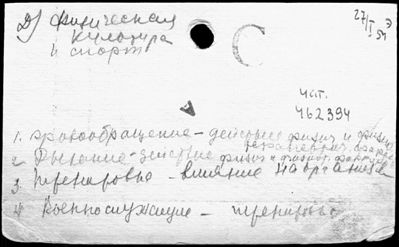 2) Физическая
культура
и спорт
27/I 54
С
чит.
462394
1. Кровообращение – действие физич. и физиол.
2. Дыхание – действие физич. и физиол. факторов
3. Тренировка – влияние на организм
4. Военнослужащие – тренировка